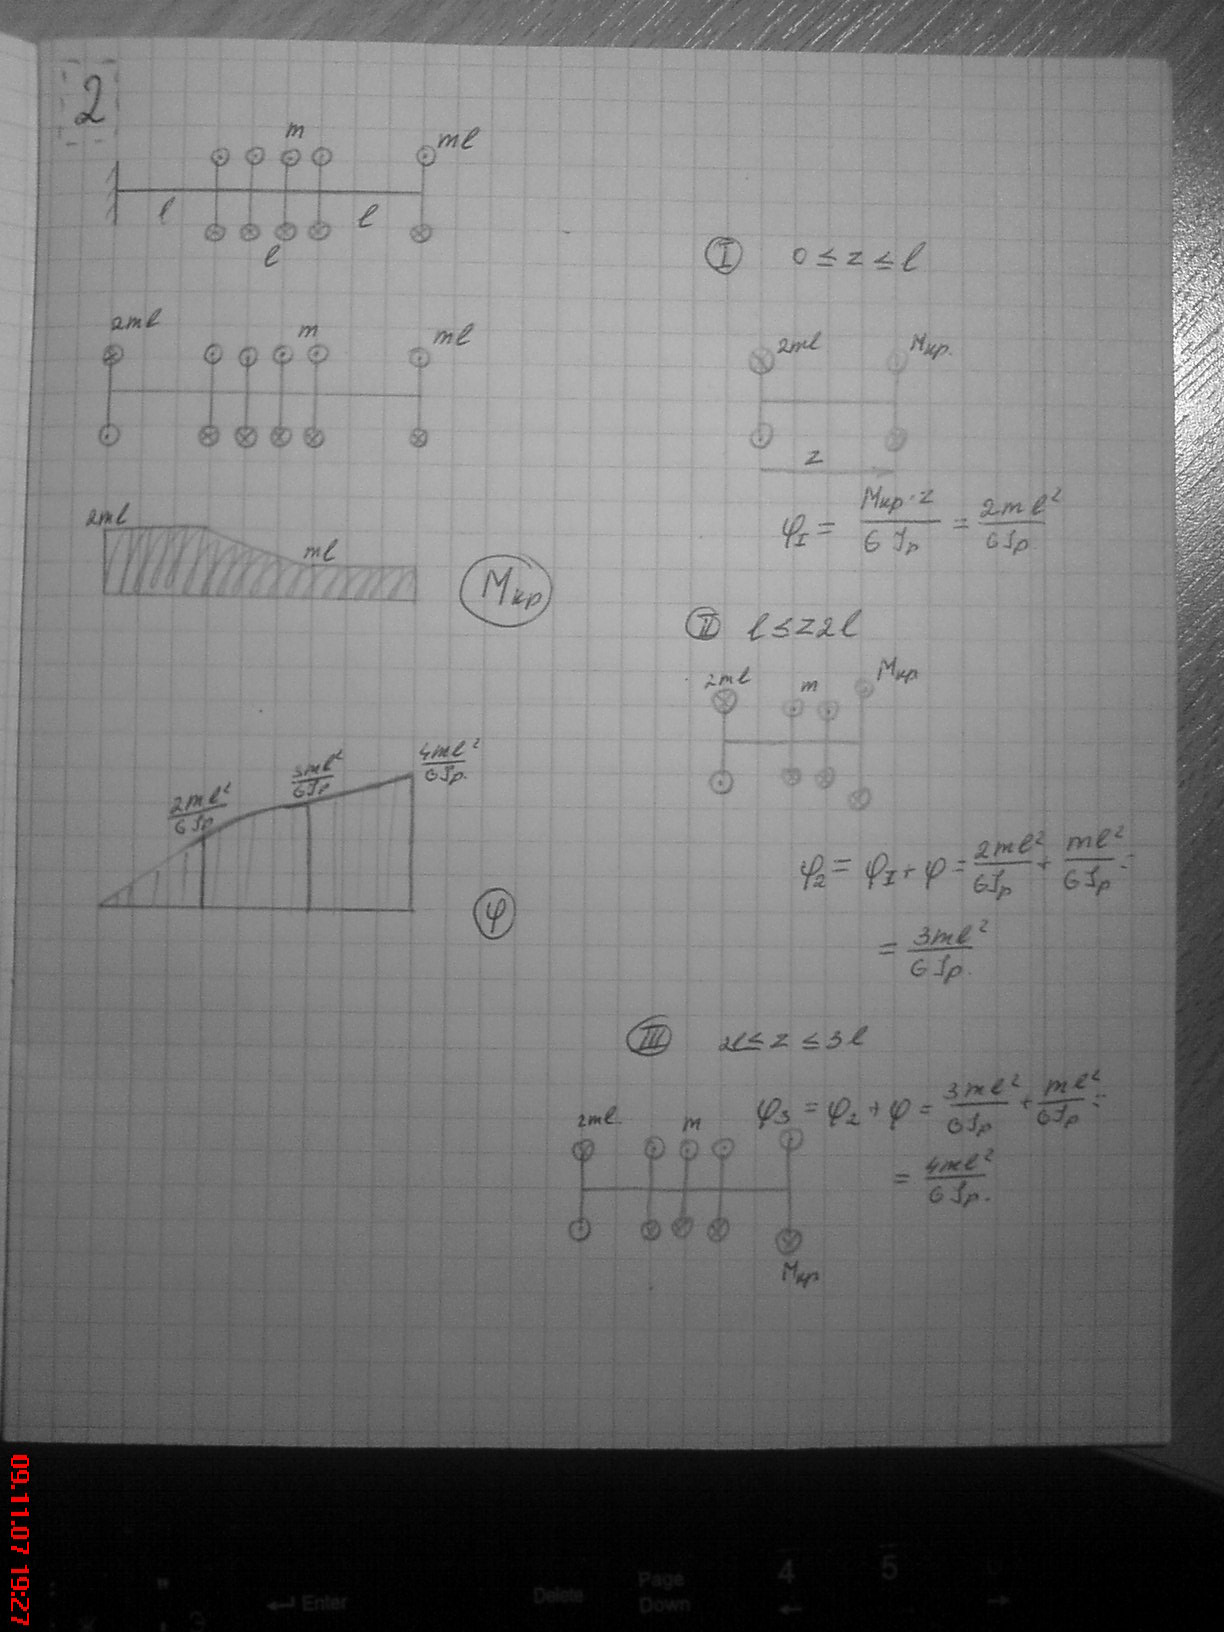 2
m
ml
l
l
l
2ml
m
ml
2ml
ml
Mкр
2ml²/GJp
3ml²/GJp
4ml²/GJp.
φ
I 0 ≤ z ≤ l
2ml
Mкр.
z
φI = Mкр·z/GJp = 2ml²/GJp.
II l ≤ z 2l
2ml
m
Mкр
φ2 = φI + φ = 2ml²/GJp + ml²/GJp =
= 3ml²/GJp.
III 2l ≤ z ≤ 3l
φ3 = φ2 + φ = 3ml²/GJp + ml²/GJp =
2ml.
m
= 4ml²/GJp.
Mкр
09.11.07 19:27
Enter
Delete
Page
Down
4
5